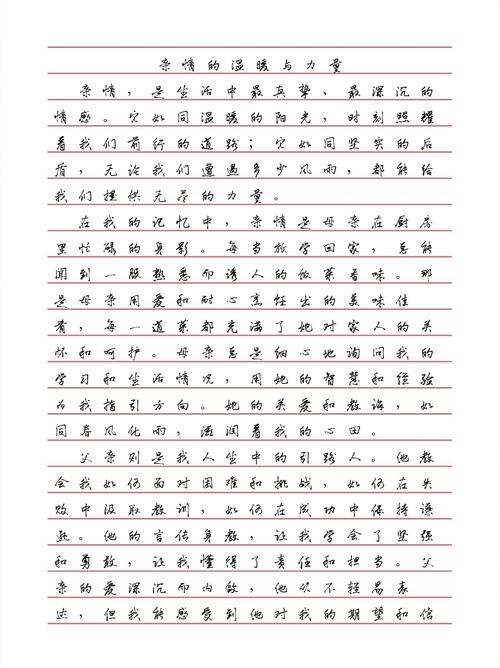 亲情的温暖与力量
亲情，是生活中最真挚、最深沉的
情感。它如同温暖的阳光，时刻照耀
着我们前行的道路；它如同坚实的后
盾，无论我们遭遇多少风雨，都能给
我们提供无尽的力量。
在我的记忆中，亲情是母亲在厨房
里忙碌的身影。每当放学回家，总能
闻到一股熟悉而诱人的饭菜香味。那
是母亲用爱和耐心烹饪出的美味佳
肴，每一道菜都充满了她对家人的关
怀和呵护。母亲总是细心地询问我的
学习和生活情况，用她的智慧和经验
为我指引方向。她的关爱和教诲，如
同春风化雨，滋润着我的心田。
父亲则是我人生中的引路人。他教
会我如何面对困难和挑战，如何在失
败中汲取教训，如何在成功中保持谦
逊。他的言传身教，让我学会了坚强
和勇敢，让我懂得了责任和担当。父
亲的爱深沉而内敛，他从不轻易表
达，但我能感受到他对我的期望和信